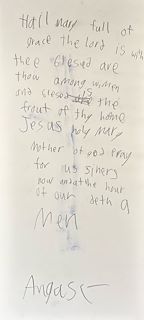 Hall mary full of
grace the lord is with
thee blesed are
thow among wimen
and blesed is the
frout of thy home
Jesas holy Mary
mother of god pray
for us siners
now and at the hour
of our deth a
Men
Angase